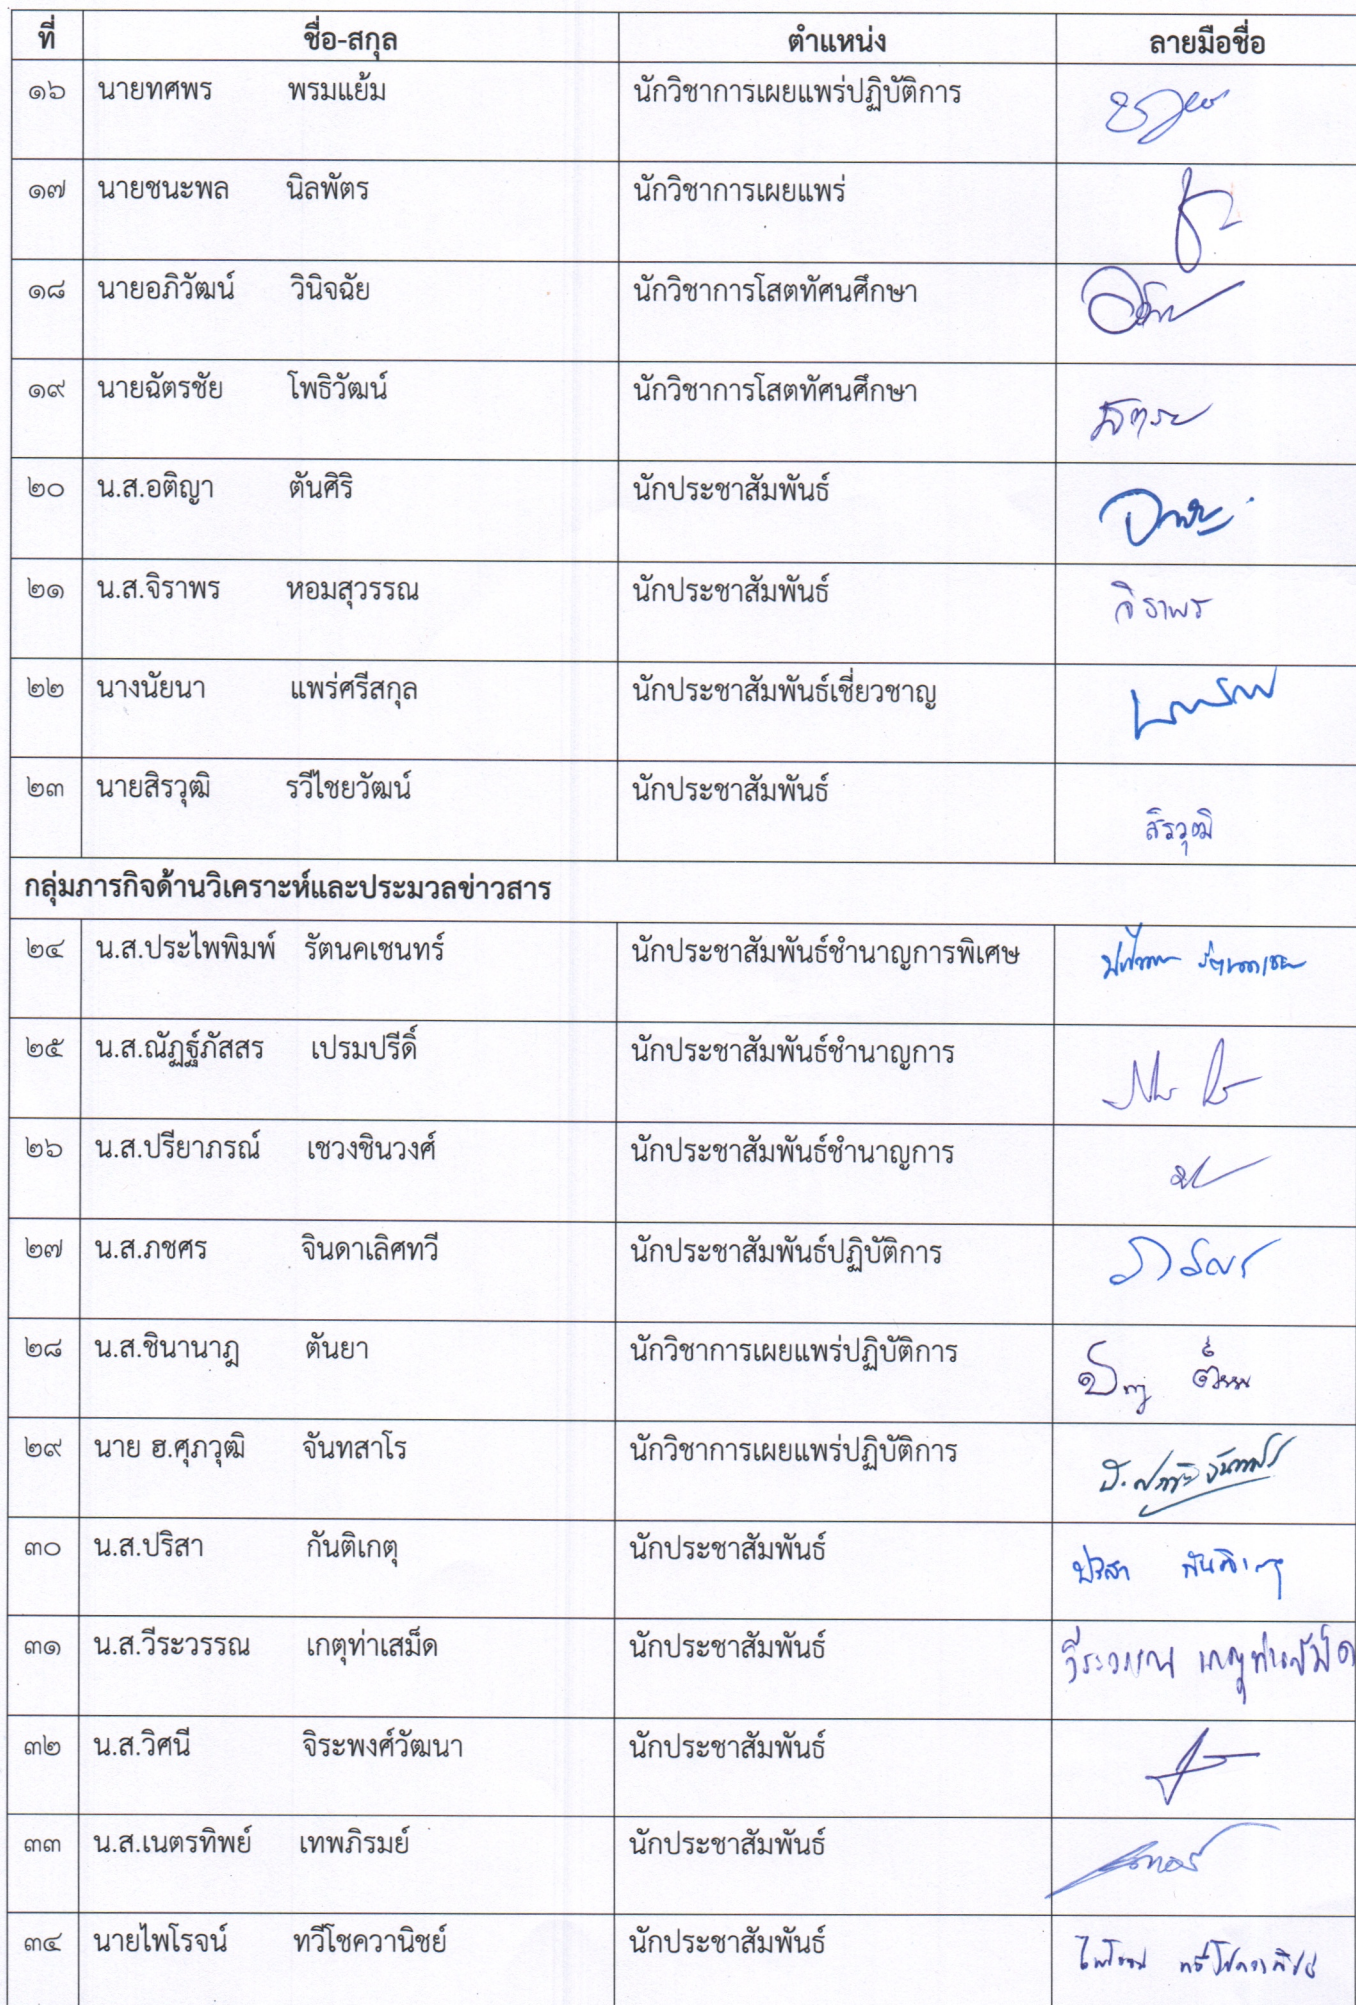 ที่ ชื่อ-สกุล ตำแหน่ง ลายมือชื่อ
๑๖ นายทศพร พรมแย้ม นักวิชาการเผยแพร่ปฏิบัติการ
๑๗ นายชนะพล นิลพัตร นักวิชาการเผยแพร่
๑๘ นายอภิวัฒน์ วินิจฉัย นักวิชาการโสตทัศนศึกษา
๑๙ นายฉัตรชัย โพธิวัฒน์ นักวิชาการโสตทัศนศึกษา
๒๐ น.ส.อติญา ตันศิริ นักประชาสัมพันธ์
๒๑ น.ส.จิราพร หอมสุวรรณ นักประชาสัมพันธ์ จิราพร
๒๒ นางนัยนา แพร่ศรีสกุล นักประชาสัมพันธ์เชี่ยวชาญ
๒๓ นายสิรวุฒิ รวีไชยวัฒน์ นักประชาสัมพันธ์ สิรวุฒิ
กลุ่มภารกิจด้านวิเคราะห์และประมวลข่าวสาร
๒๔ น.ส.ประไพพิมพ์ รัตนคเชนทร์ นักประชาสัมพันธ์ชำนาญการพิเศษ
๒๕ น.ส.ณัฏฐ์ภัสสร เปรมปรีดิ์ นักประชาสัมพันธ์ชำนาญการ
๒๖ น.ส.ปรียาภรณ์ เชวงชินวงศ์ นักประชาสัมพันธ์ชำนาญการ
๒๗ น.ส.ภชศร จินดาเลิศทวี นักประชาสัมพันธ์ปฏิบัติการ
๒๘ น.ส.ชินานาฎ ตันยา นักวิชาการเผยแพร่ปฏิบัติการ
๒๙ นาย ฮ.ศุภวุฒิ จันทสาโร นักวิชาการเผยแพร่ปฏิบัติการ
๓๐ น.ส.ปริสา กันติเกตุ นักประชาสัมพันธ์ ปริสา กันติเกตุ
๓๑ น.ส.วีระวรรณ เกตุท่าเสม็ด นักประชาสัมพันธ์ วีระวรรณ เกตุท่าเสม็ด
๓๒ น.ส.วิศนี จิระพงศ์วัฒนา นักประชาสัมพันธ์
๓๓ น.ส.เนตรทิพย์ เทพภิรมย์ นักประชาสัมพันธ์
๓๔ นายไพโรจน์ ทวีโชควานิชย์ นักประชาสัมพันธ์ ไพโรจน์ ทวีโชควานิชย์